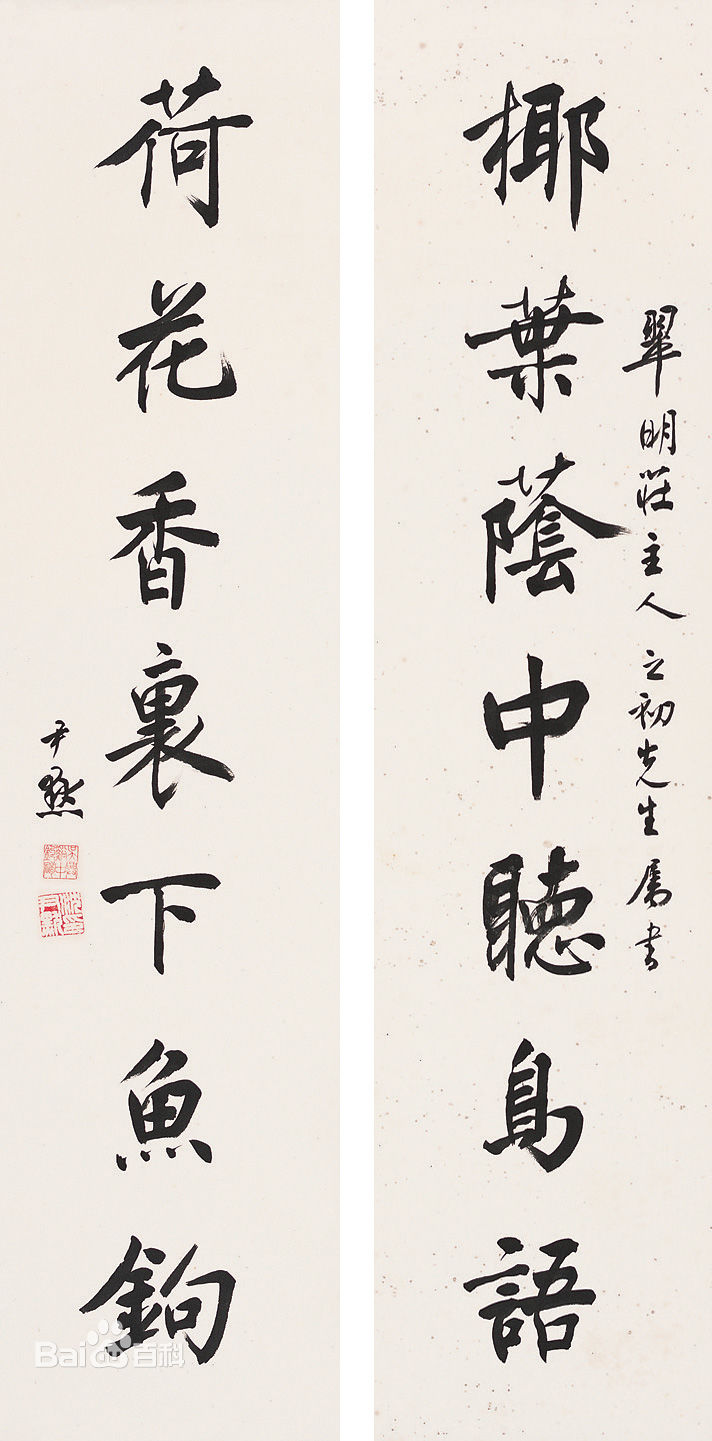 翠明莊主人之初先生屬書
椰葉蔭中聽鳥語
荷花香裏下魚鉤
尹默
Bai du 百科